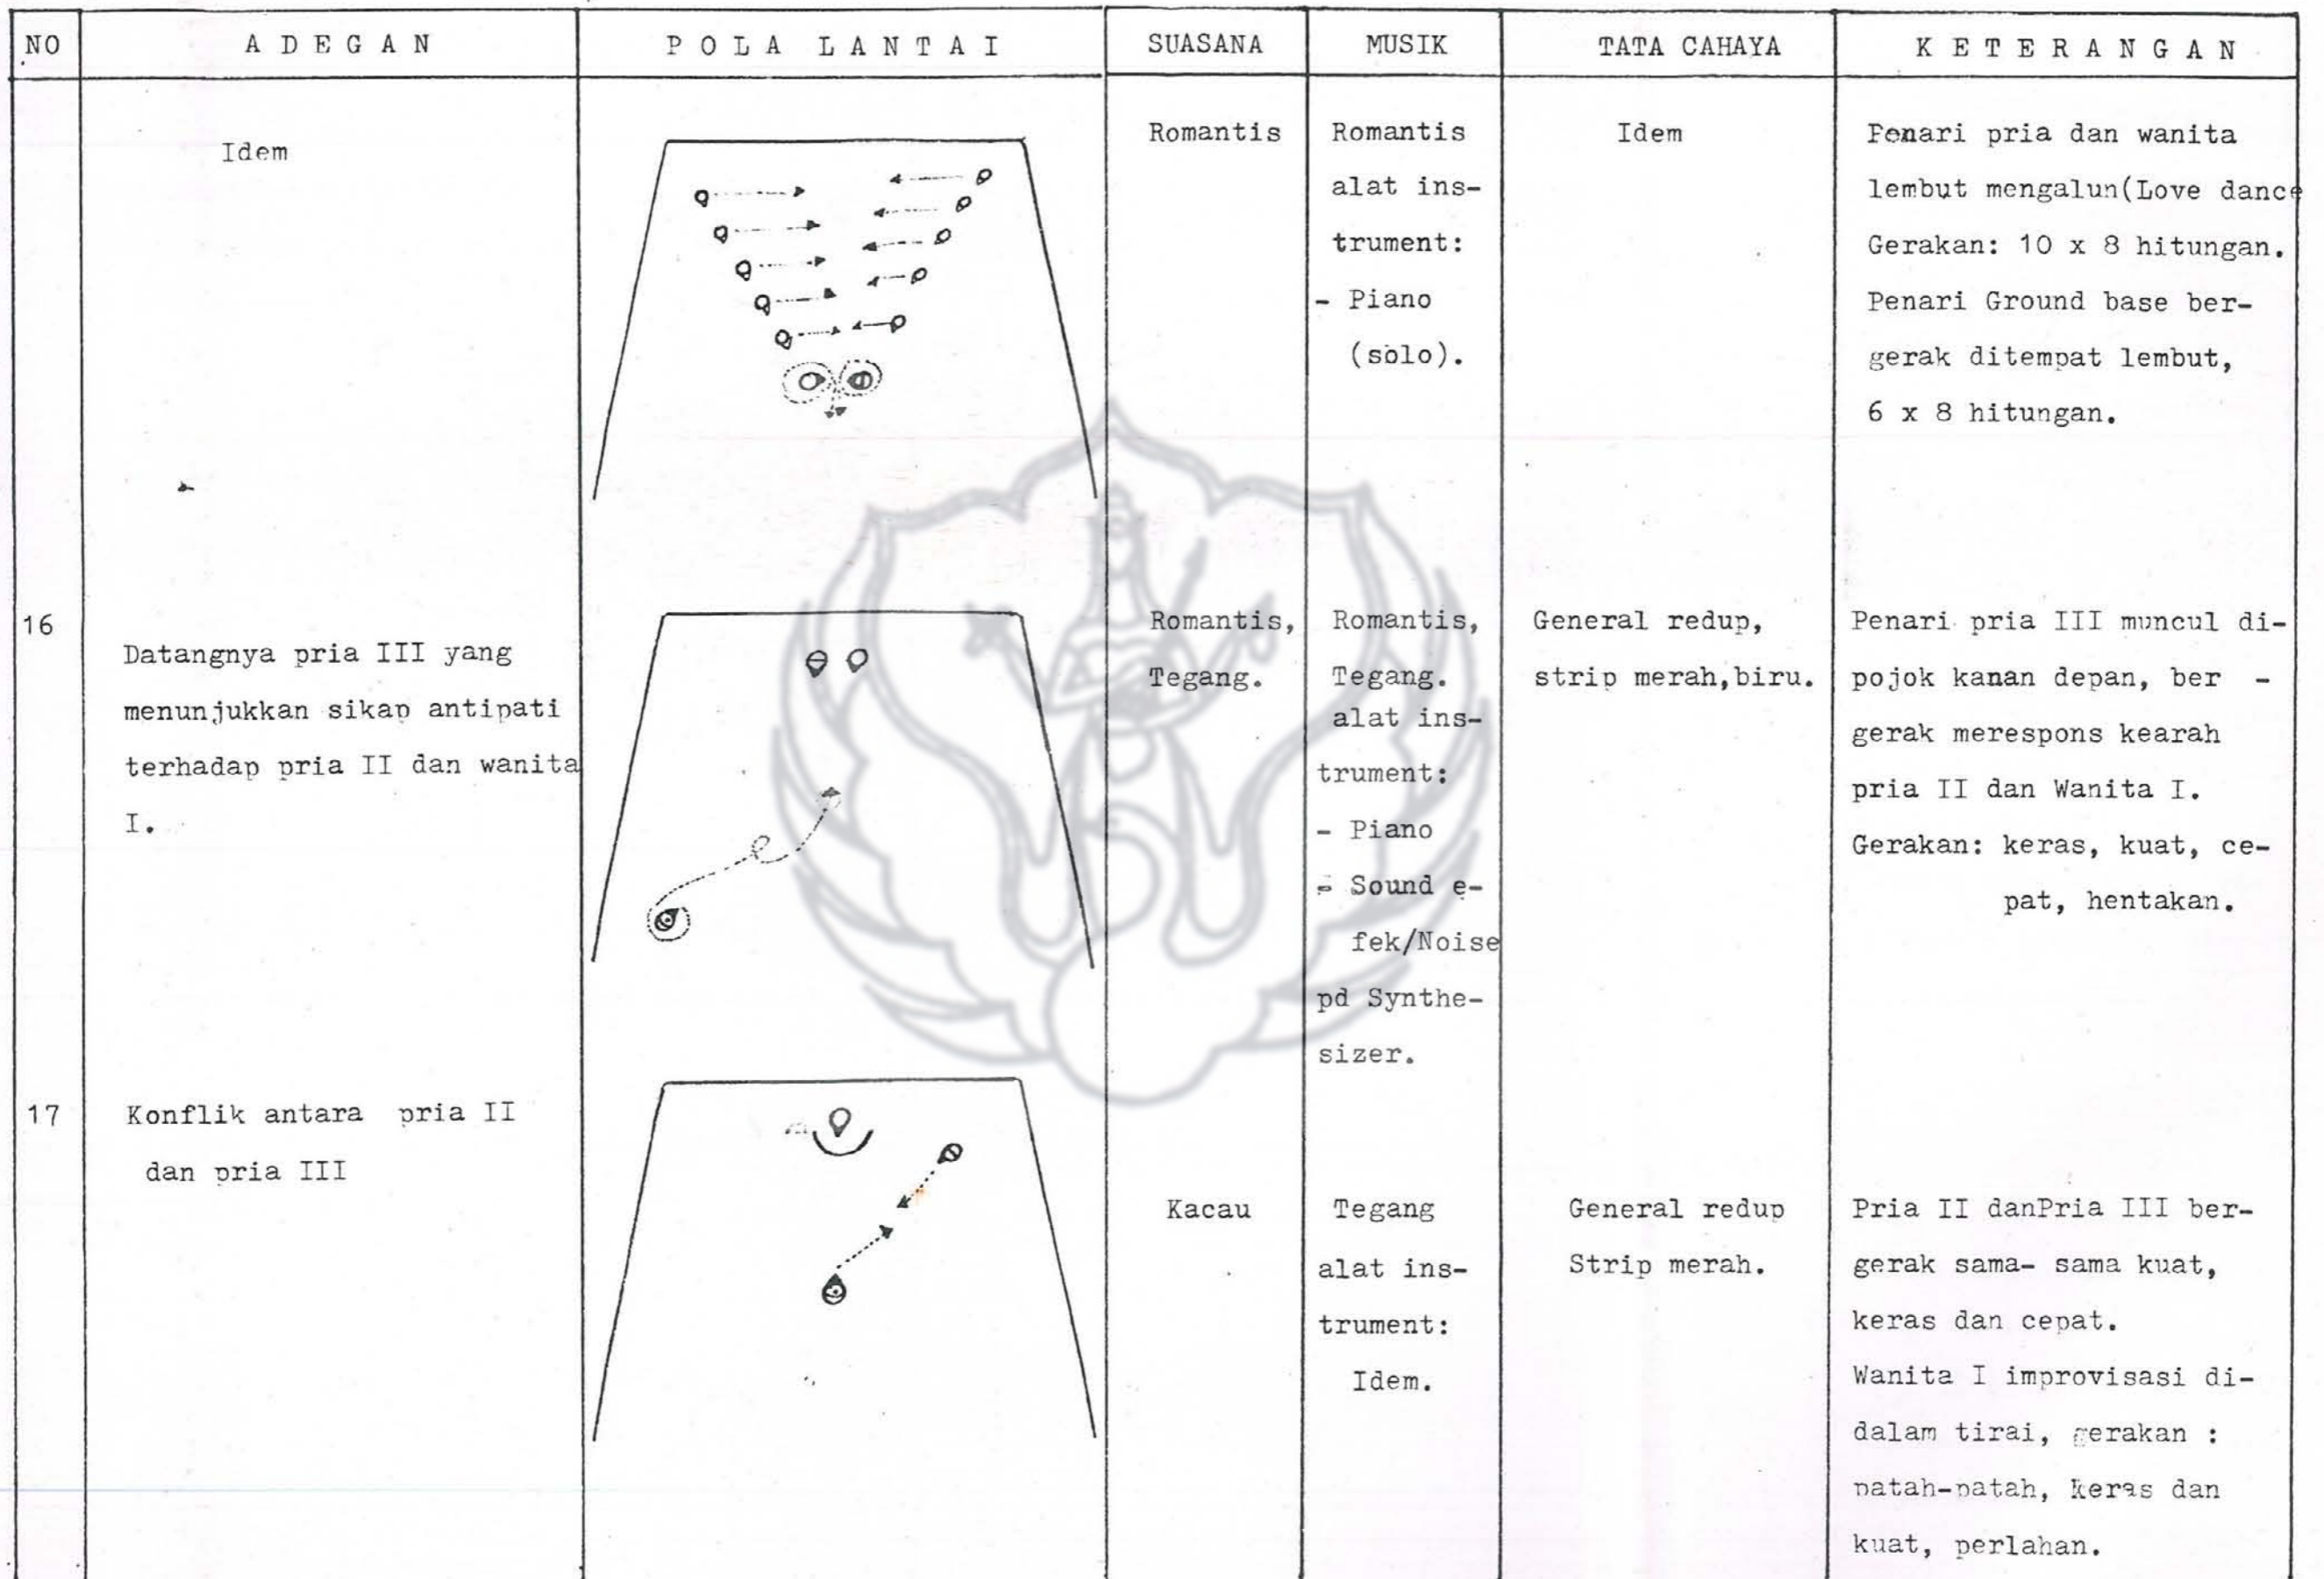 NO
A D E G A N
P O L A  L A N T A I
SUASANA
MUSIK
TATA CAHAYA
K E T E R A N G A N
Idem
Romantis
Romantis
alat ins-
trument:
- Piano
(solo).
Idem
Penari pria dan wanita
lembut mengalun(Love dance
Gerakan: 10 x 8 hitungan.
Penari Ground base ber-
gerak ditempat lembut,
6 x 8 hitungan.
16
Datangnya pria III yang
menunjukkan sikap antipati
terhadap pria II dan wanita
I.
Romantis,
Tegang.
Romantis,
Tegang.
alat ins-
trument:
- Piano
- Sound e-
fek/Noise
pd Synthe-
sizer.
General redup,
strip merah,biru.
Penari pria III muncul di-
pojok kanan depan, ber -
gerak merespons kearah
pria II dan Wanita I.
Gerakan: keras, kuat, ce-
pat, hentakan.
17
Konflik antara pria II
dan pria III
Kacau
Tegang
alat ins-
trument:
Idem.
General redup
Strip merah.
Pria II danPria III ber-
gerak sama- sama kuat,
keras dan cepat.
Wanita I improvisasi di-
dalam tirai, gerakan :
patah-patah, keras dan
kuat, perlahan.